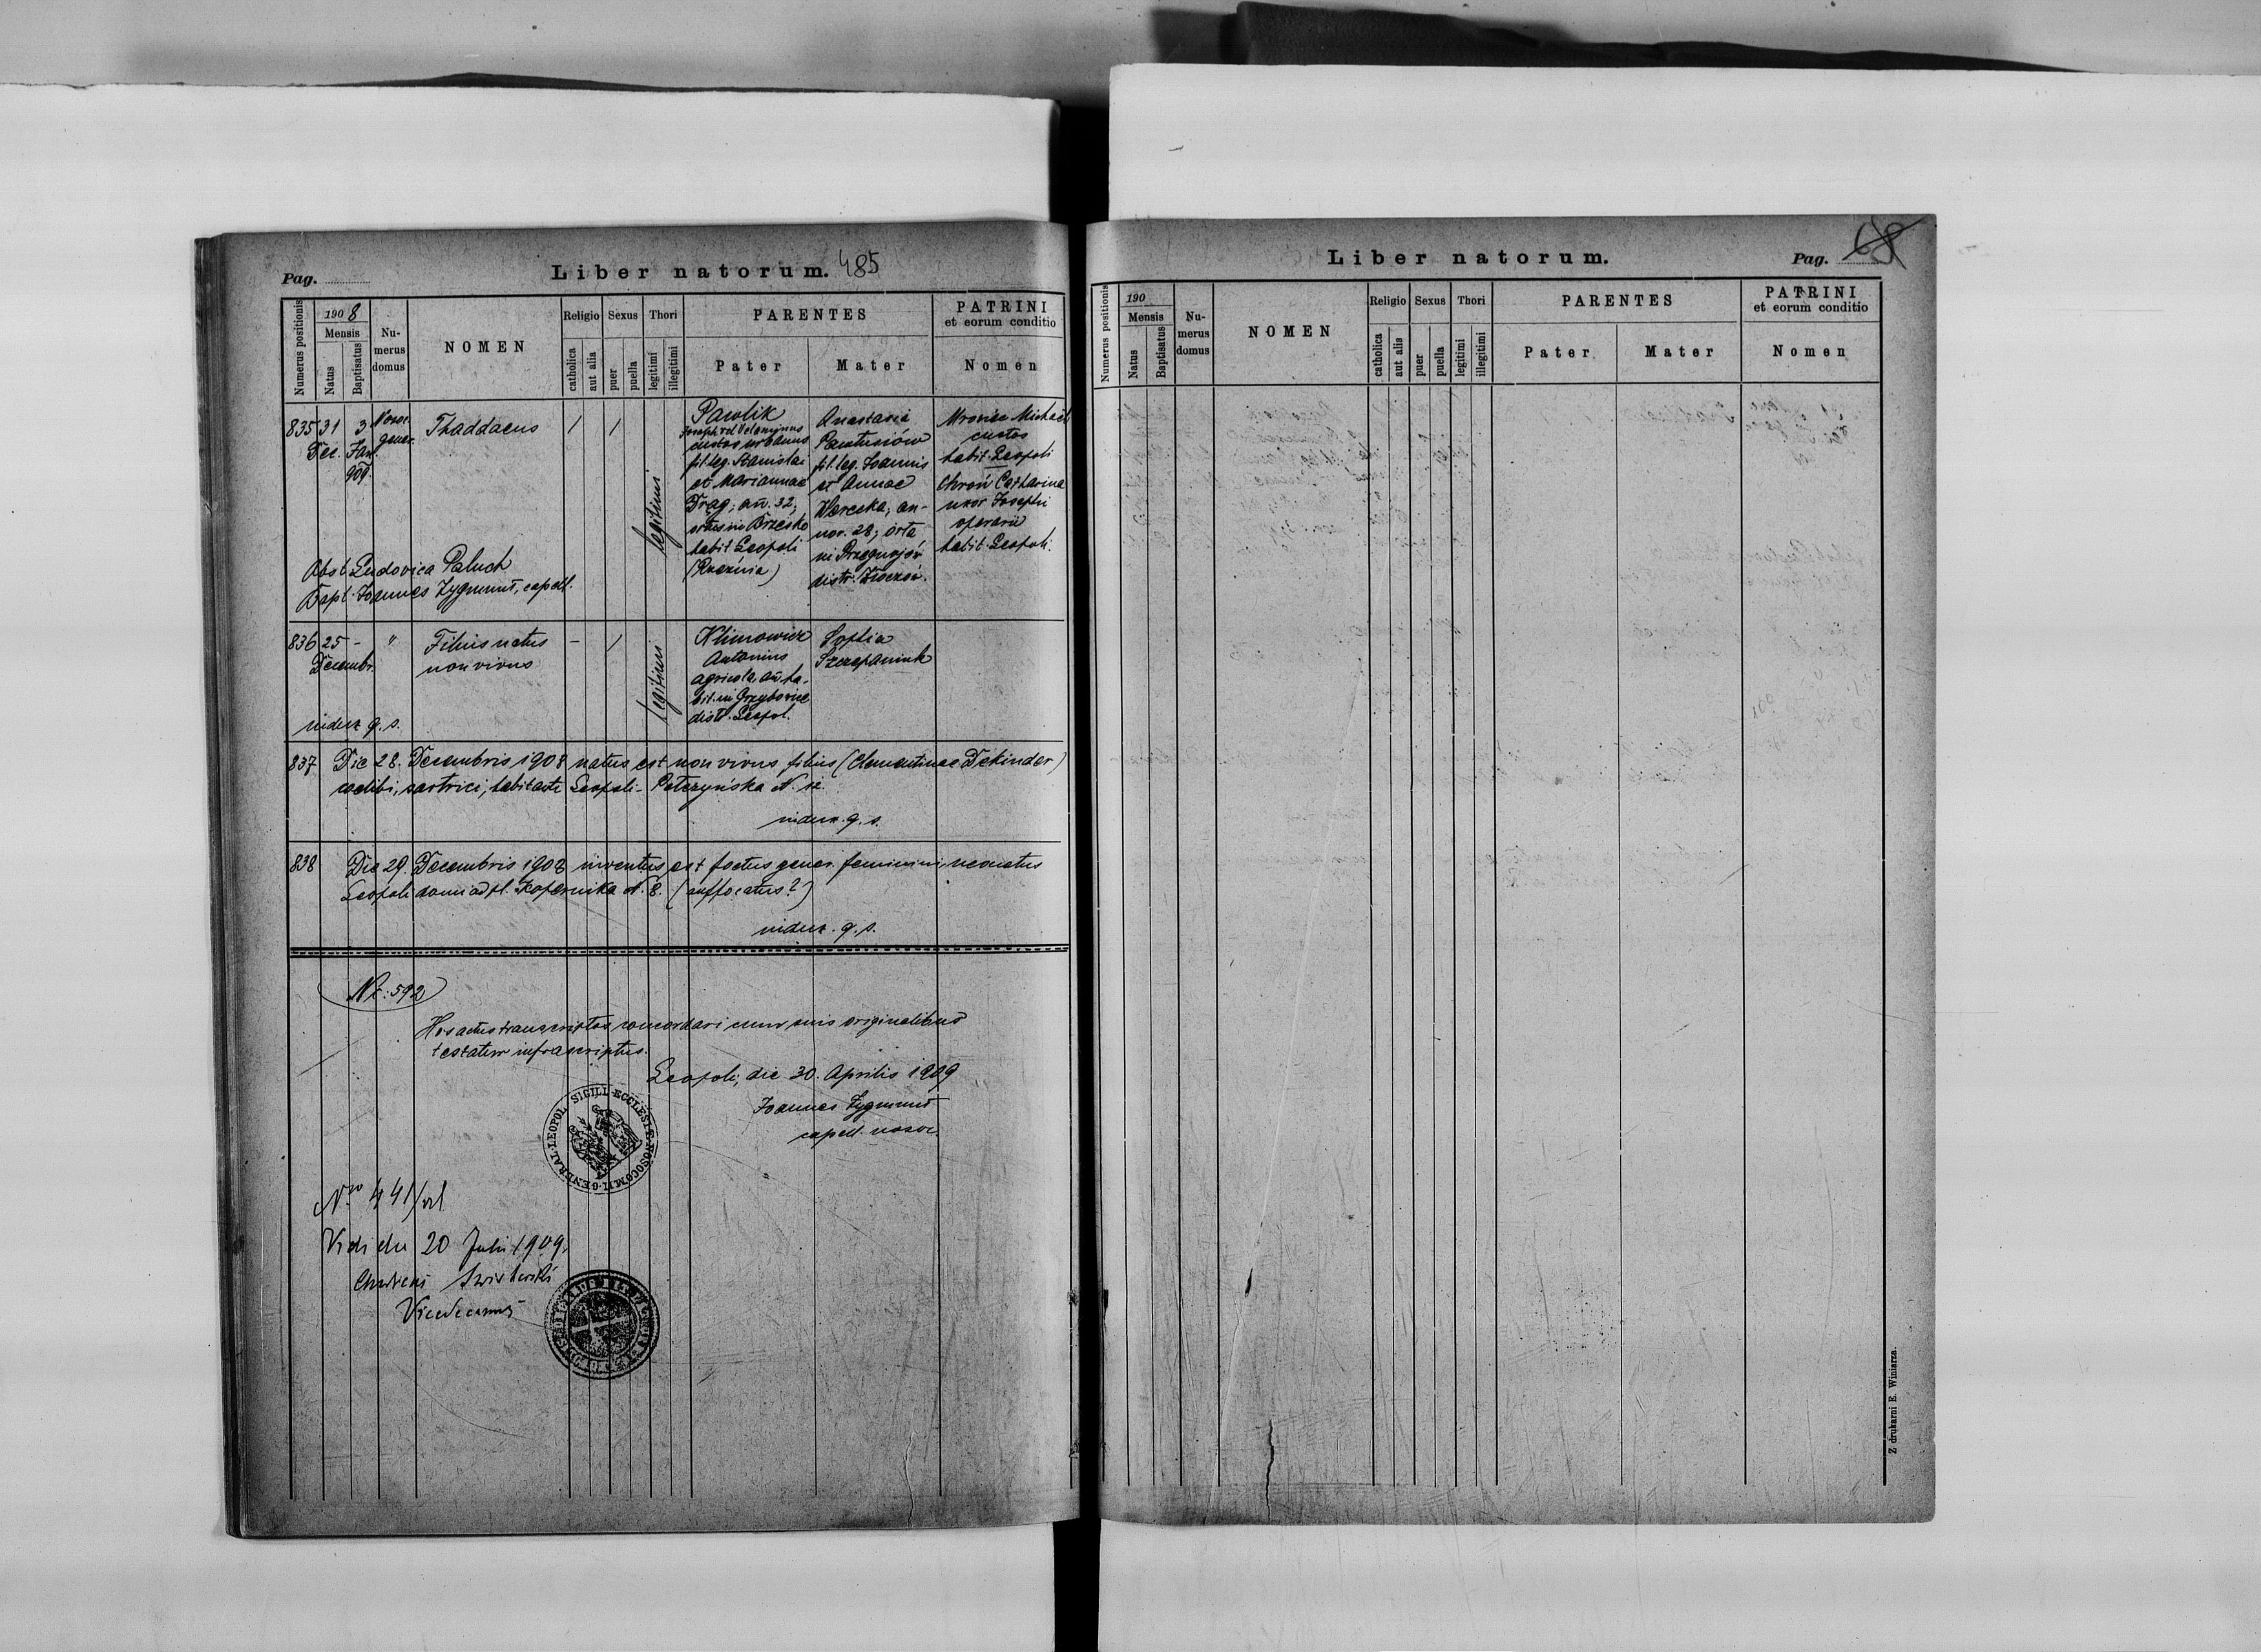 Pag.
Liber natorum. 485
Numerus positionis
1908
Mensis
Natus
Baptisatus
Numerus domus
NOMEN
Religio
catholica
aut alia
Sexus
puer
puella
Thori
legitimi
illegitimi
PARENTES
Pater
Mater
PATRINI
et eorum conditio
Nomen
835 31 3 Nosoc.
Dec. Jan. gener.
909.
Thaddaeus
/ /
legitimus
Pawlik
custos urbanus
fil. leg. Stanislai
et Mariannae
Drąg, an. 32,
ortus in Brzesko
habit. Leopoli
(Rzeźnia)
Anastasia
fil. leg. Joannis
et Annae
Warecka, an-
nor. 28, orta
in
distr. Złoczów.
Michael
custos
habit. Leopoli
Chroń Catharina
uxor Josephi
operarii
habit. Leopoli.
Obst. Ludovica Paluch
Bapt. Joannes Zygmunt, capell.
836 25 - "
Decembr.
Filius natus
non vivus
- /
legitimus
Klimowicz
Antonius
agricola, ha-
bit. in Grzybowice
distr. Leopol.
Sophia
Szczepaniuk
videtur q. s.
837 Die 28. Decembris 1908 natus est non vivus filius (Clementinae Dekinder)
caelibi, sartrici, habitanti Leopoli - Pełczyńska N. 12.
q. s.
838 Die 29. Decembris 1908 inventus est foetus gener. feminini, neonatus
Leopoli domi ad pl. Kopernika N. 8. (suffocatus?)
q. s.
Nr: 592
Hos actus transcriptos concordari cum suis originalibus
testatur infrascriptus.
Leopoli, die 30. Aprilis 1909
Joannes Zygmunt
capell. nosoc.
SIGILL. ECCLESIÆ NOSOCOMII GENERAL LEOPOL
Nro 441/
Vidi die 20 Julii 1909.
Vicedecanus
Liber natorum.
Pag. 68
Numerus positionis
190
Mensis
Natus
Baptisatus
Numerus domus
NOMEN
Religio
catholica
aut alia
Sexus
puer
puella
Thori
legitimi
illegitimi
PARENTES
Pater
Mater
PATRINI
et eorum conditio
Nomen
Z drukarni E. Winiarza.